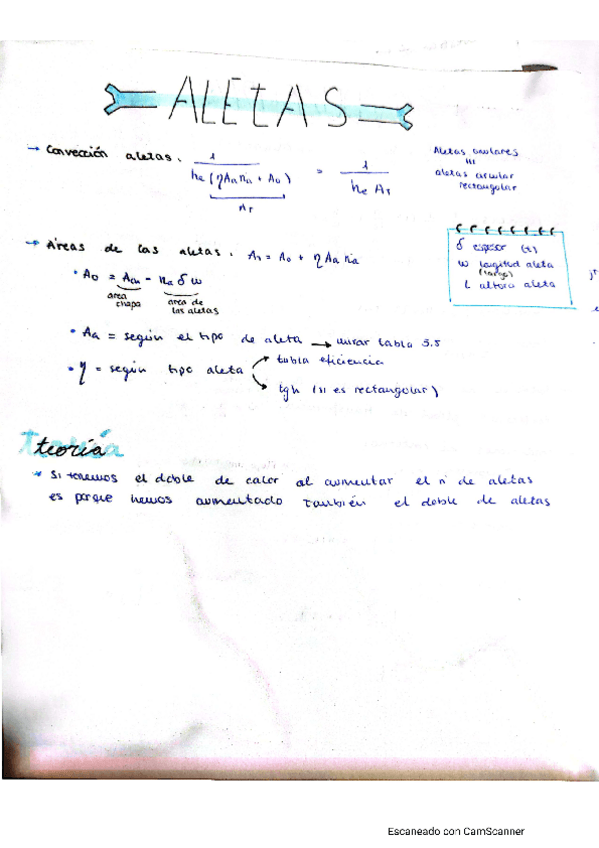 ALETAS
→ Convección aletas. 1 / he (ηAa na + Ao) = 1 / he AT
AT
Aletas anulares
III
aletas circular
rectangular
→ Áreas de las aletas. AT = Ao + η Aa na
δ espesor (t)
w longitud aleta
(largo)
L altura aleta
• Ao = Ach - na δ w
area chapa
area de las aletas
• Aa = según el tipo de aleta → mirar tabla 5.5
• η = según tipo aleta
tabla eficiencia
tgh (si es rectangular)
teoría
* Si tenemos el doble de calor al aumentar el nº de aletas
es porque hemos aumentado también el doble de aletas
Escaneado con CamScanner